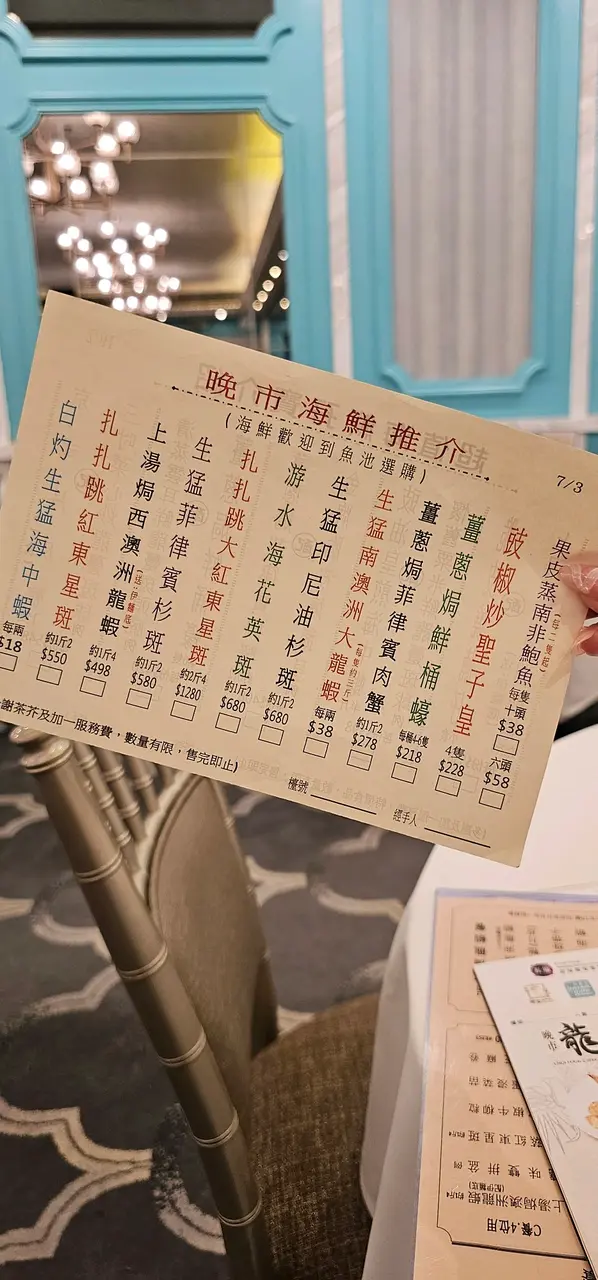 晚市海鮮推介
(海鮮歡迎到魚池選購)
7/3
果皮蒸南非鮑魚 (每二隻起) 每隻 十頭 $38 六頭 $58
豉椒炒聖子皇 4隻 $228
薑蔥焗鮮桶蠔 每桶4-6隻 $218
薑蔥焗菲律賓肉蟹 約1斤2 $278
生猛南澳洲大龍蝦 (每隻約三斤) 每兩 $38
生猛印尼油杉斑 約1斤2 $680
游水海花英斑 約1斤2 $680
扎扎跳大紅東星斑 約2斤4 $1280
生猛菲律賓杉斑 約1斤2 $580
上湯焗西澳洲龍蝦 (送:伊麵底) 約1斤4 $498
扎扎跳紅東星斑 約1斤2 $550
白灼生猛海中蝦 每兩 $18
謝茶芥及加一服務費，數量有限，售完即止)
檯號
經手人
晚市
龍
C餐.4位用
上湯焗澳洲龍蝦 約1斤4
(配伊麵底)